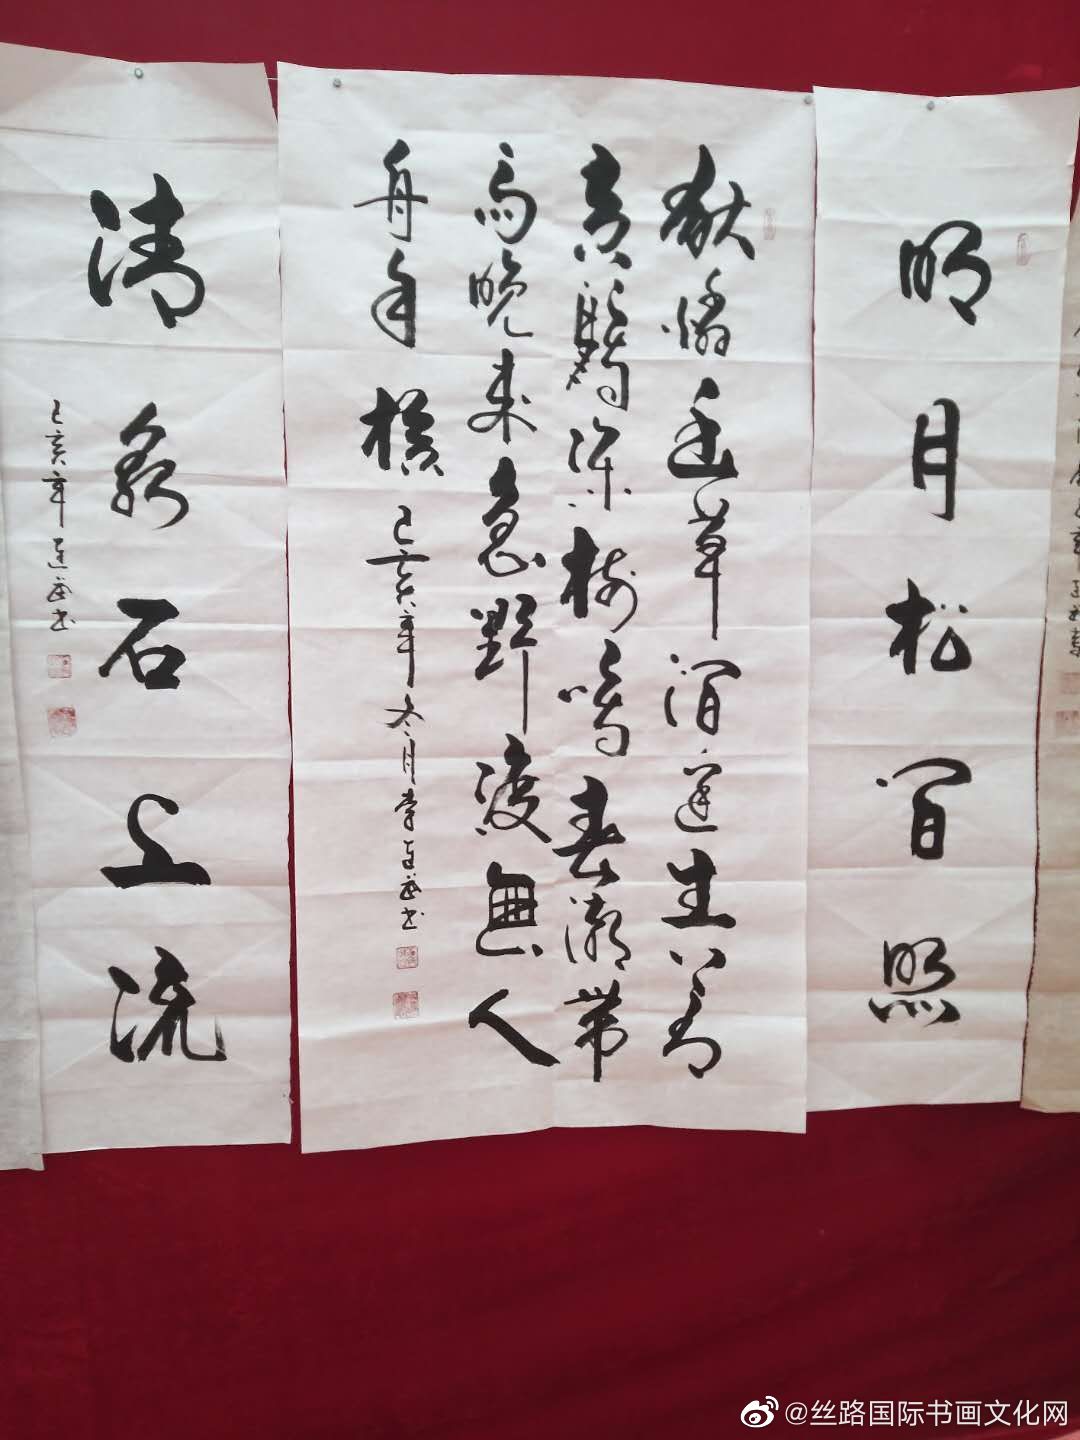 明月松间照
独怜幽草涧边生上有
黄鹂深树鸣春潮带
雨晚来急野渡無人
舟自横
己亥年冬月李连武书
清泉石上流
己亥年连武书
@丝路国际书画文化网